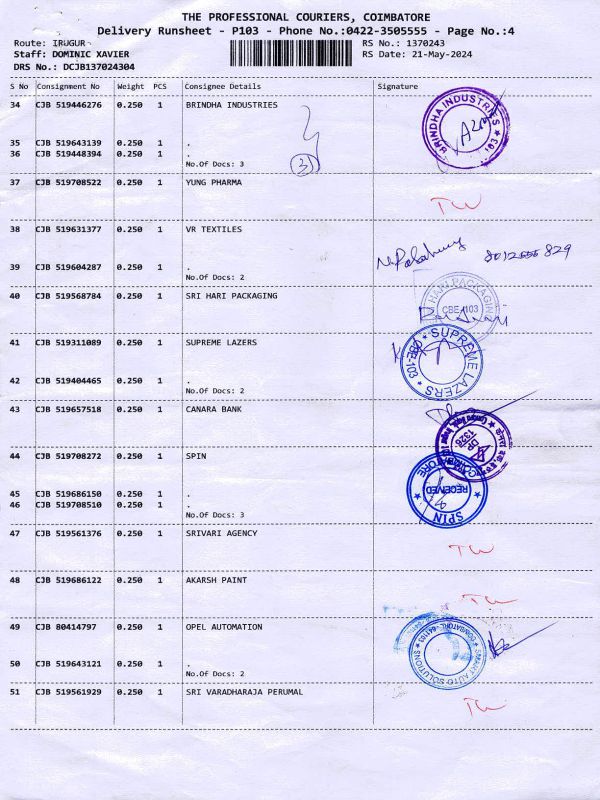 THE PROFESSIONAL COURIERS, COIMBATORE
Delivery Runsheet - P103 - Phone No.:0422-3505555 - Page No.:4
Route: IRUGUR RS No.: 1370243
Staff: DOMINIC XAVIER RS Date: 21-May-2024
DRS No.: DCJB137024304
S No Consignment No Weight PCS Consignee Details Signature
34 CJB 519446276 0.250 1 BRINDHA INDUSTRIES
BRINDHA INDUSTRIES 103
35 CJB 519643139 0.250 1 .
36 CJB 519448394 0.250 1 .
No.Of Docs: 3
3
37 CJB 519708522 0.250 1 YUNG PHARMA
TW
38 CJB 519631377 0.250 1 VR TEXTILES
8012555829
39 CJB 519604287 0.250 1 .
No.Of Docs: 2
40 CJB 519568784 0.250 1 SRI HARI PACKAGING
HARI PACKAGING CBE 103
41 CJB 519311089 0.250 1 SUPREME LAZERS
SUPREME LAZERS CBE-103
42 CJB 519404465 0.250 1 .
No.Of Docs: 2
43 CJB 519657518 0.250 1 CANARA BANK
DP 1326
44 CJB 519708272 0.250 1 SPIN
SPIN RECEIVED COIMBATORE
45 CJB 519686150 0.250 1 .
46 CJB 519708510 0.250 1 .
No.Of Docs: 3
47 CJB 519561376 0.250 1 SRIVARI AGENCY
TW
48 CJB 519686122 0.250 1 AKARSH PAINT
TW
49 CJB 80414797 0.250 1 OPEL AUTOMATION
SMART AUTO SOLUTIONS COIMBATORE-641103
50 CJB 519643121 0.250 1 .
No.Of Docs: 2
51 CJB 519561929 0.250 1 SRI VARADHARAJA PERUMAL
TW